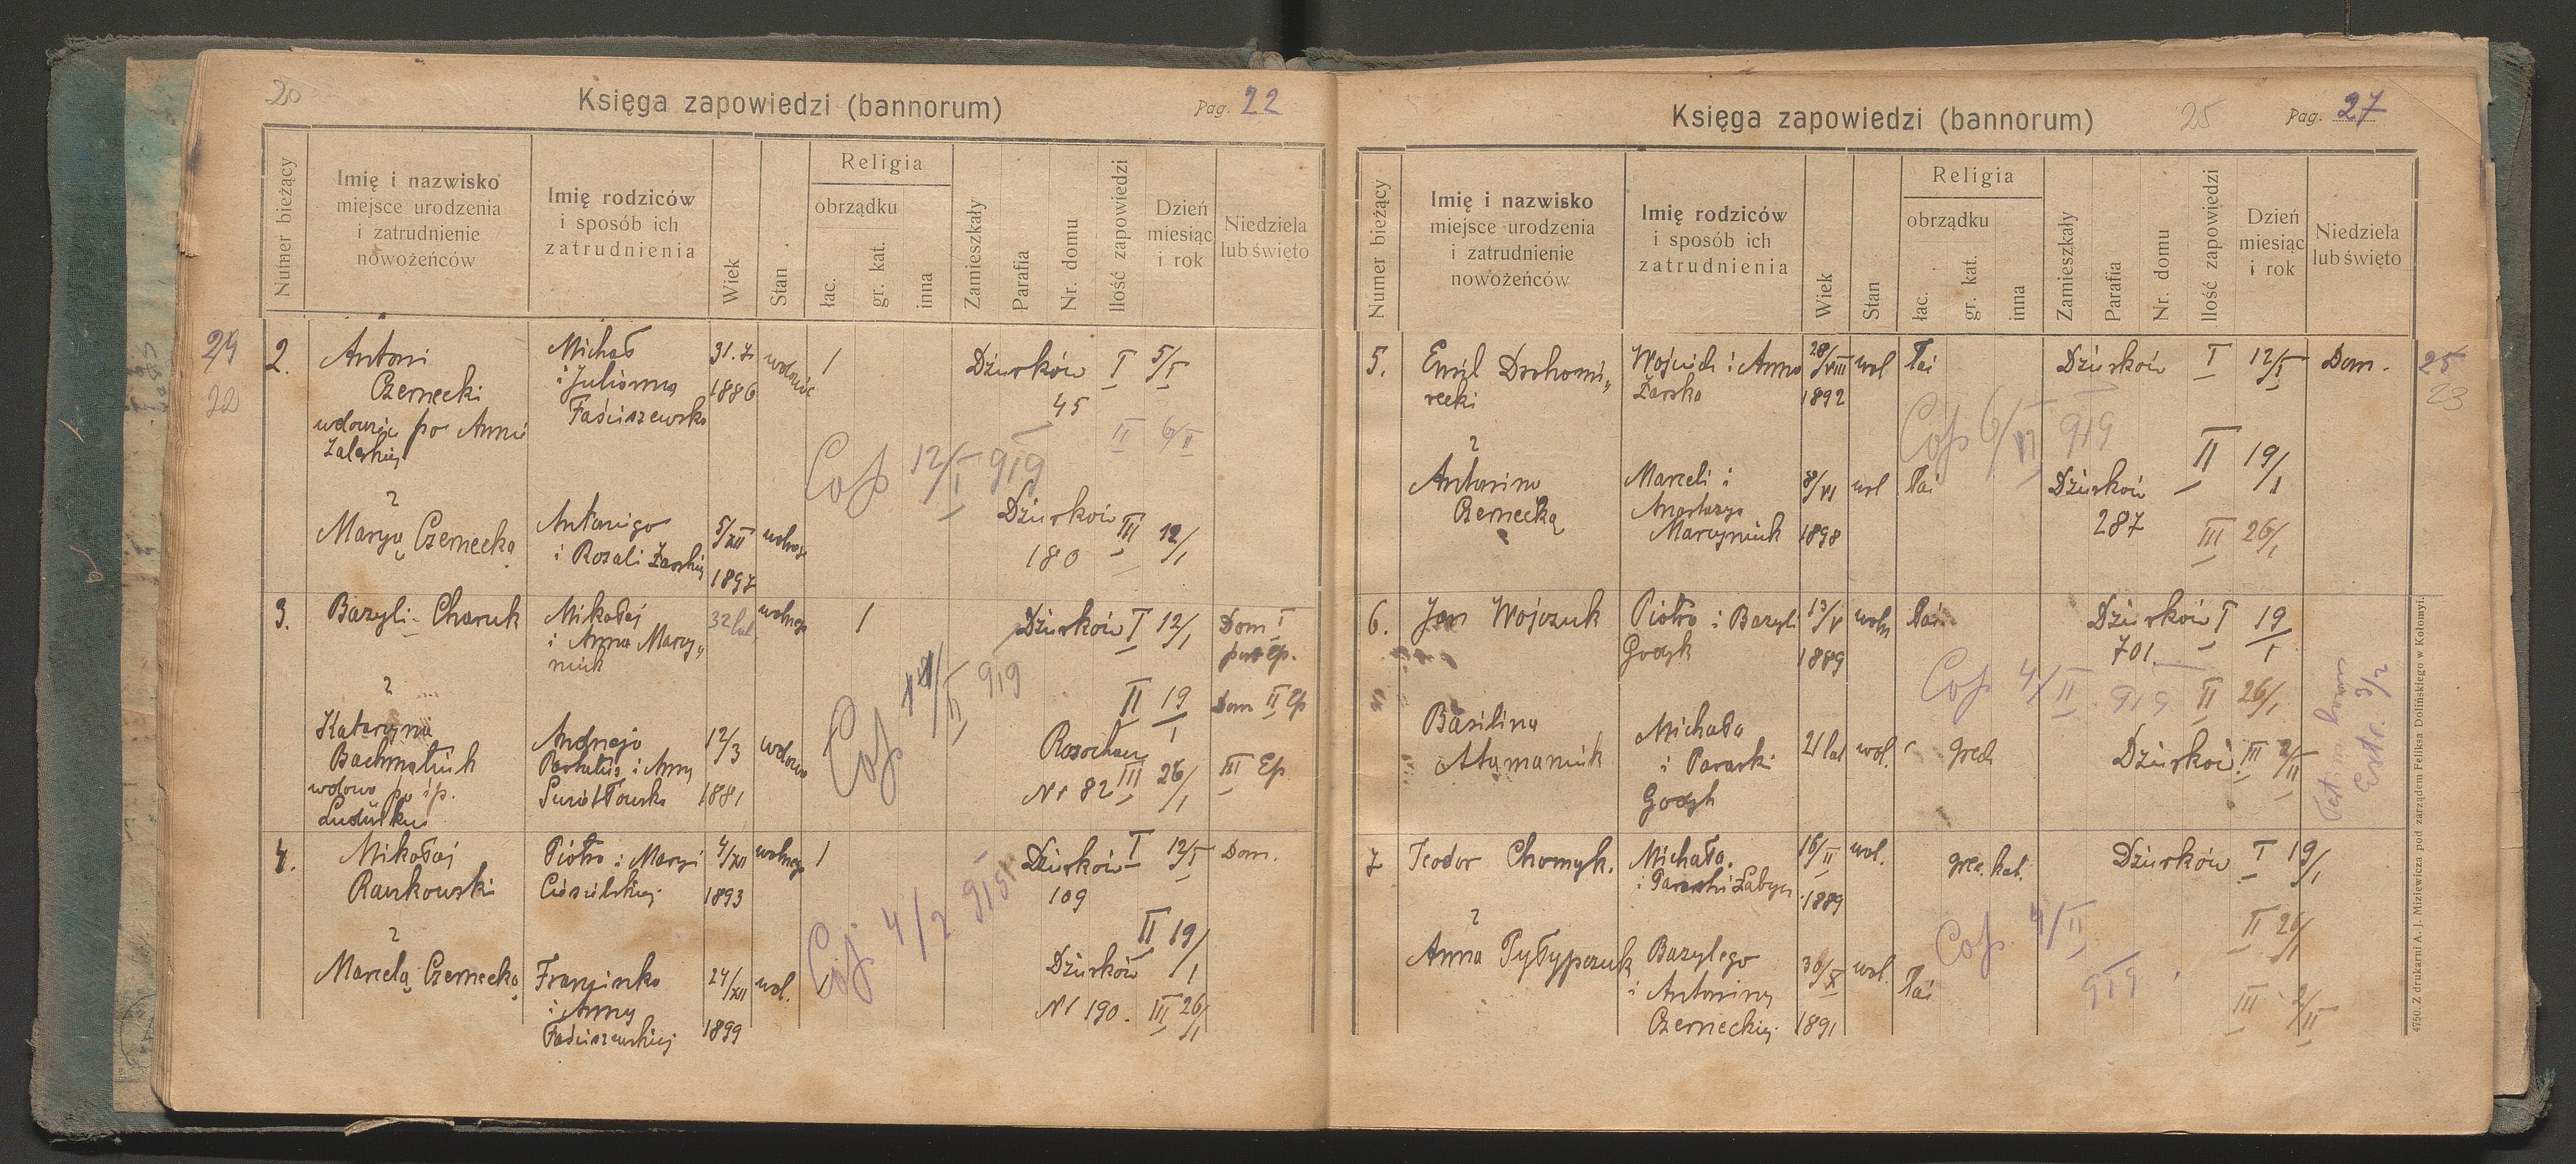 20
Księga zapowiedzi (bannorum)
Pag. 22
Numer bieżący
Imię i nazwisko
miejsce urodzenia
i zatrudnienie
nowożeńców
Imię rodziców
i sposób ich
zatrudnienia
Wiek
Stan
Religia
obrządku
łac.
gr. kat.
inna
Zamieszkały
Parafia
Nr. domu
Ilość zapowiedzi
Dzień
miesiąc
i rok
Niedziela
lub święto
24
22
2. Antoni Michał 31.7. / Dżurków I 5/I
Czernecki i Julianna 1886 45
wdowiec po Annie Faściszewska II 6/II
Zaleskiej
Cop 12/I 919
z
Maryą Czernecką Antoniego 5/XII wolnego Dżurków III 12/I
i Rozali Żarskiej 1897 180
3. Bazyli Charuk Mikołaj 32 lat wolnego / Dżurków I 12/1 Dom I
i Anna Marcy„ post Ep.
niuk
Cop /II 919
z II 19/I Dom II Ep
Kataryna Andrzeja 12/3 wdowa
Bachmatiuk i Anny Nr 82 III 26/I III Ep
wdowa po śp. 1881
4. Mikołaj Piotra i Maryi 4/XII wolnego / Dżurków I 12/I Dom.
Rankowski Ciesielskiej 1893 109
Coj 4/2 915
z II 19/I
Marcelą Czernecką Franciszka 24/XII wol. Dżurków
i Anny Nr 190. III 26/I
Faściszewskiej 1899
Księga zapowiedzi (bannorum)
25
Pag. 27
Numer bieżący
Imię i nazwisko
miejsce urodzenia
i zatrudnienie
nowożeńców
Imię rodziców
i sposób ich
zatrudnienia
Wiek
Stan
Religia
obrządku
łac.
gr. kat.
inna
Zamieszkały
Parafia
Nr. domu
Ilość zapowiedzi
Dzień
miesiąc
i rok
Niedziela
lub święto
25
23
5. Emil Dochomi„ Wojciech i Anna 28/VIII wol łai Dżurków I 12/I Dom.
recki Żarska 1892
Cop 6/II 919
z II 19/I
Antonina Marceli i 8/VI wol łai Dżurków
Czernecką Anastazya 287
Marcyniuk 1898 III 26/I
6. Jan Wojczuk Piotra i Bazyli 13/V woln łai Dżurków I 19/I
Godyk 1889 701.
Cop 4/II 919 II 26/I
Basilina Michała 21 lat wol. Dżurków III 2/II
Atamaniuk i Paraski
Godyk
7 Teodor Chomyk. Michała 16/II wol. grec. kat. Dżurków I 19/I
1889
Cop 4/II 919
z II 26/I
Anna Pyłypczuk Bazylego 30/X wol. łai
i Antoniny III 2/II
Czerneckiej 1891
4750. Z drukarni A. J. Miziewicza pod zarządem Feliksa Dolińskiego w Kołomyi.